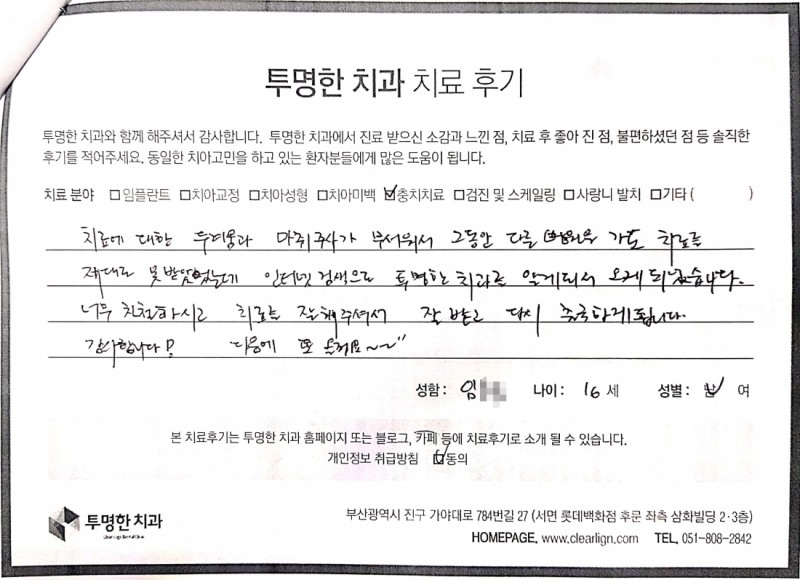 투명한 치과 치료 후기
투명한 치과와 함께 해주셔서 감사합니다. 투명한 치과에서 진료 받으신 소감과 느낀 점, 치료 후 좋아 진 점, 불편하셨던 점 등 솔직한
후기를 적어주세요. 동일한 치아고민을 하고 있는 환자분들에게 많은 도움이 됩니다.
치료 분야 □임플란트 □치아교정 □치아성형 □치아미백 ☑충치치료 □검진 및 스케일링 □사랑니 발치 □기타 ( )
치료에 대한 두려움과 마취주사가 무서워서 그동안 다른 병원을 가도 치료를
제대로 못받았었는데 인터넷 검색으로 투명한 치과를 알게되서 오게 되었습니다.
너무 친절하시고 치료를 잘해주셔서 잘 받고 다시
감사합니다! 다음에 또 올게요~~"
성함 : 임 나이 : 16 세 성별 : 남 여
본 치료후기는 투명한 치과 홈페이지 또는 블로그, 카페 등에 치료후기로 소개 될 수 있습니다.
개인정보 취급방침 ☑동의
투명한 치과
부산광역시 진구 가야대로 784번길 27 (서면 롯데백화점 후문 좌측 삼화빌딩 2·3층)
HOMEPAGE. www.clearlign.com TEL. 051-808-2842